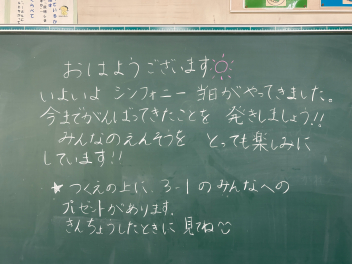 おはようございます
いよいよ シンフォニー 当日がやってきました。
今までがんばってきたことを 発きしましょう!!
みんなのえんそうを とっても楽しみに
しています!!
★ つくえの上に、3-1のみんなへの
プレゼントがあります。
きんちょうしたときに 見てね